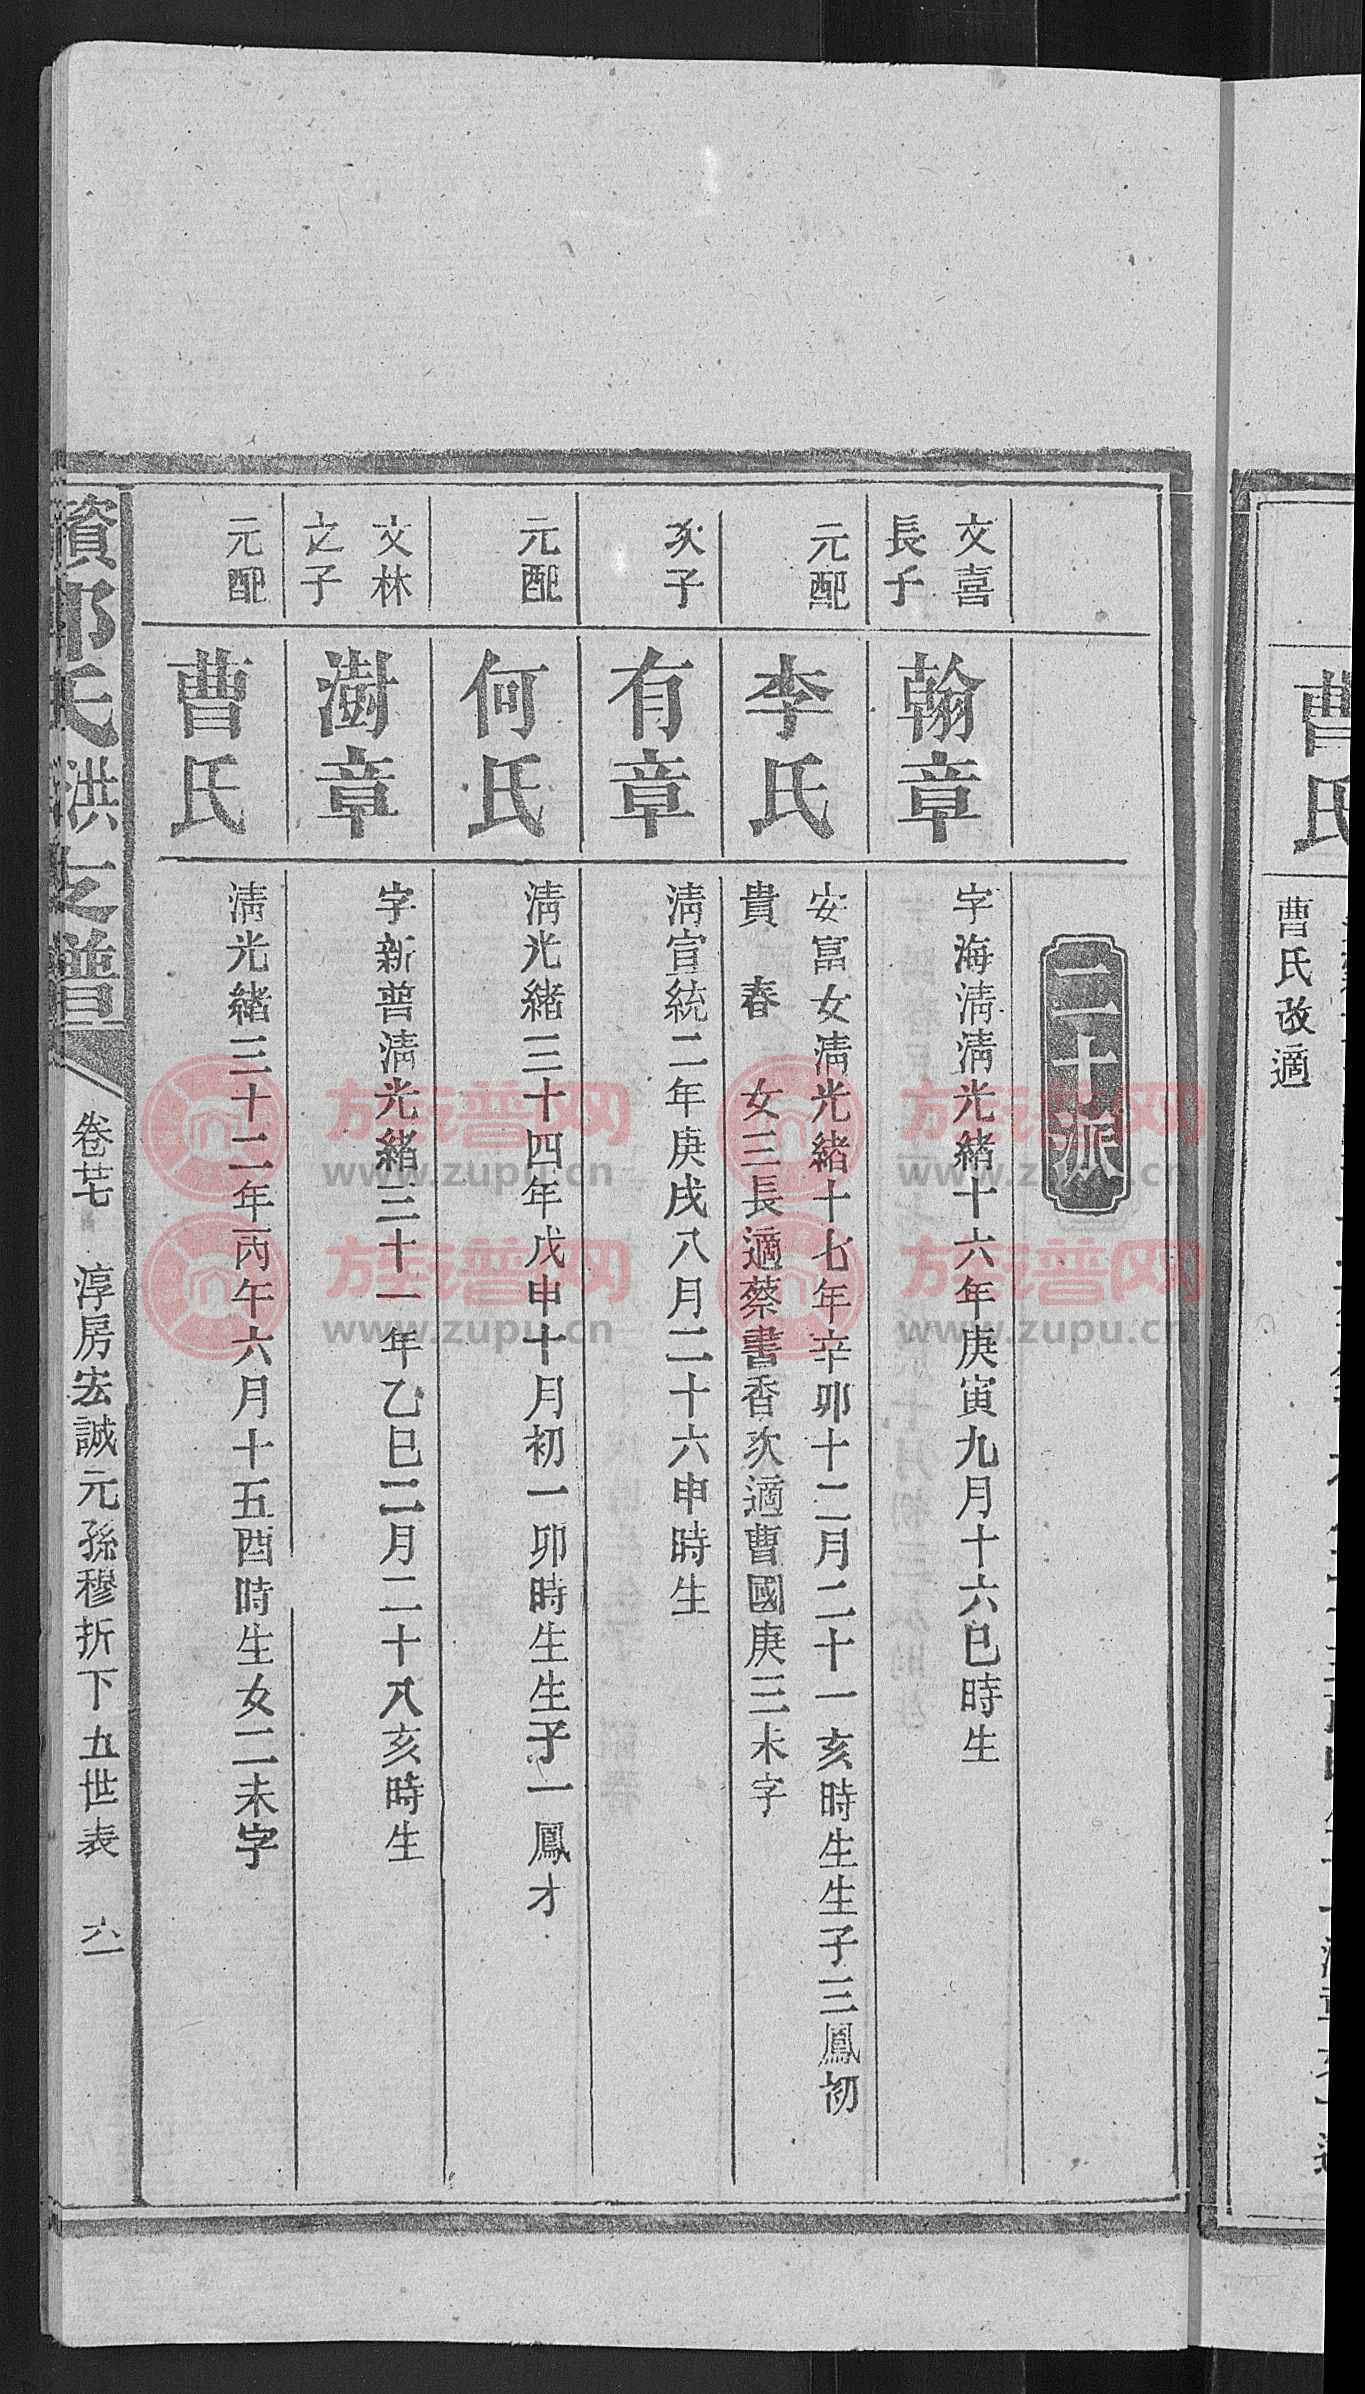 曹氏
曹氏改適
二十派
文喜
長子
翰章
字海淸淸光緒十六年庚寅九月十六巳時生
元配
李氏
安富女淸光緒十七年辛卯十二月二十一亥時生生子三鳳初
貴 春 女三長適蔡書香次適曹國庚三未字
次子
有章
淸宣統二年庚戌八月二十六申時生
元配
何氏
淸光緒三十四年戊申十月初一卯時生生子一鳳才
文林
之子
澍章
字新普淸光緒三十一年乙巳二月二十八亥時生
元配
曹氏
淸光緒三十二年丙午六月十五酉時生女二未字
資邵氏洪七譜
卷廿七 淳房宏誠元孫穆折下五世表 六一
族譜网
www.zupu.cn
族譜网
www.zupu.cn
族譜网
www.zupu.cn
族譜网
www.zupu.cn